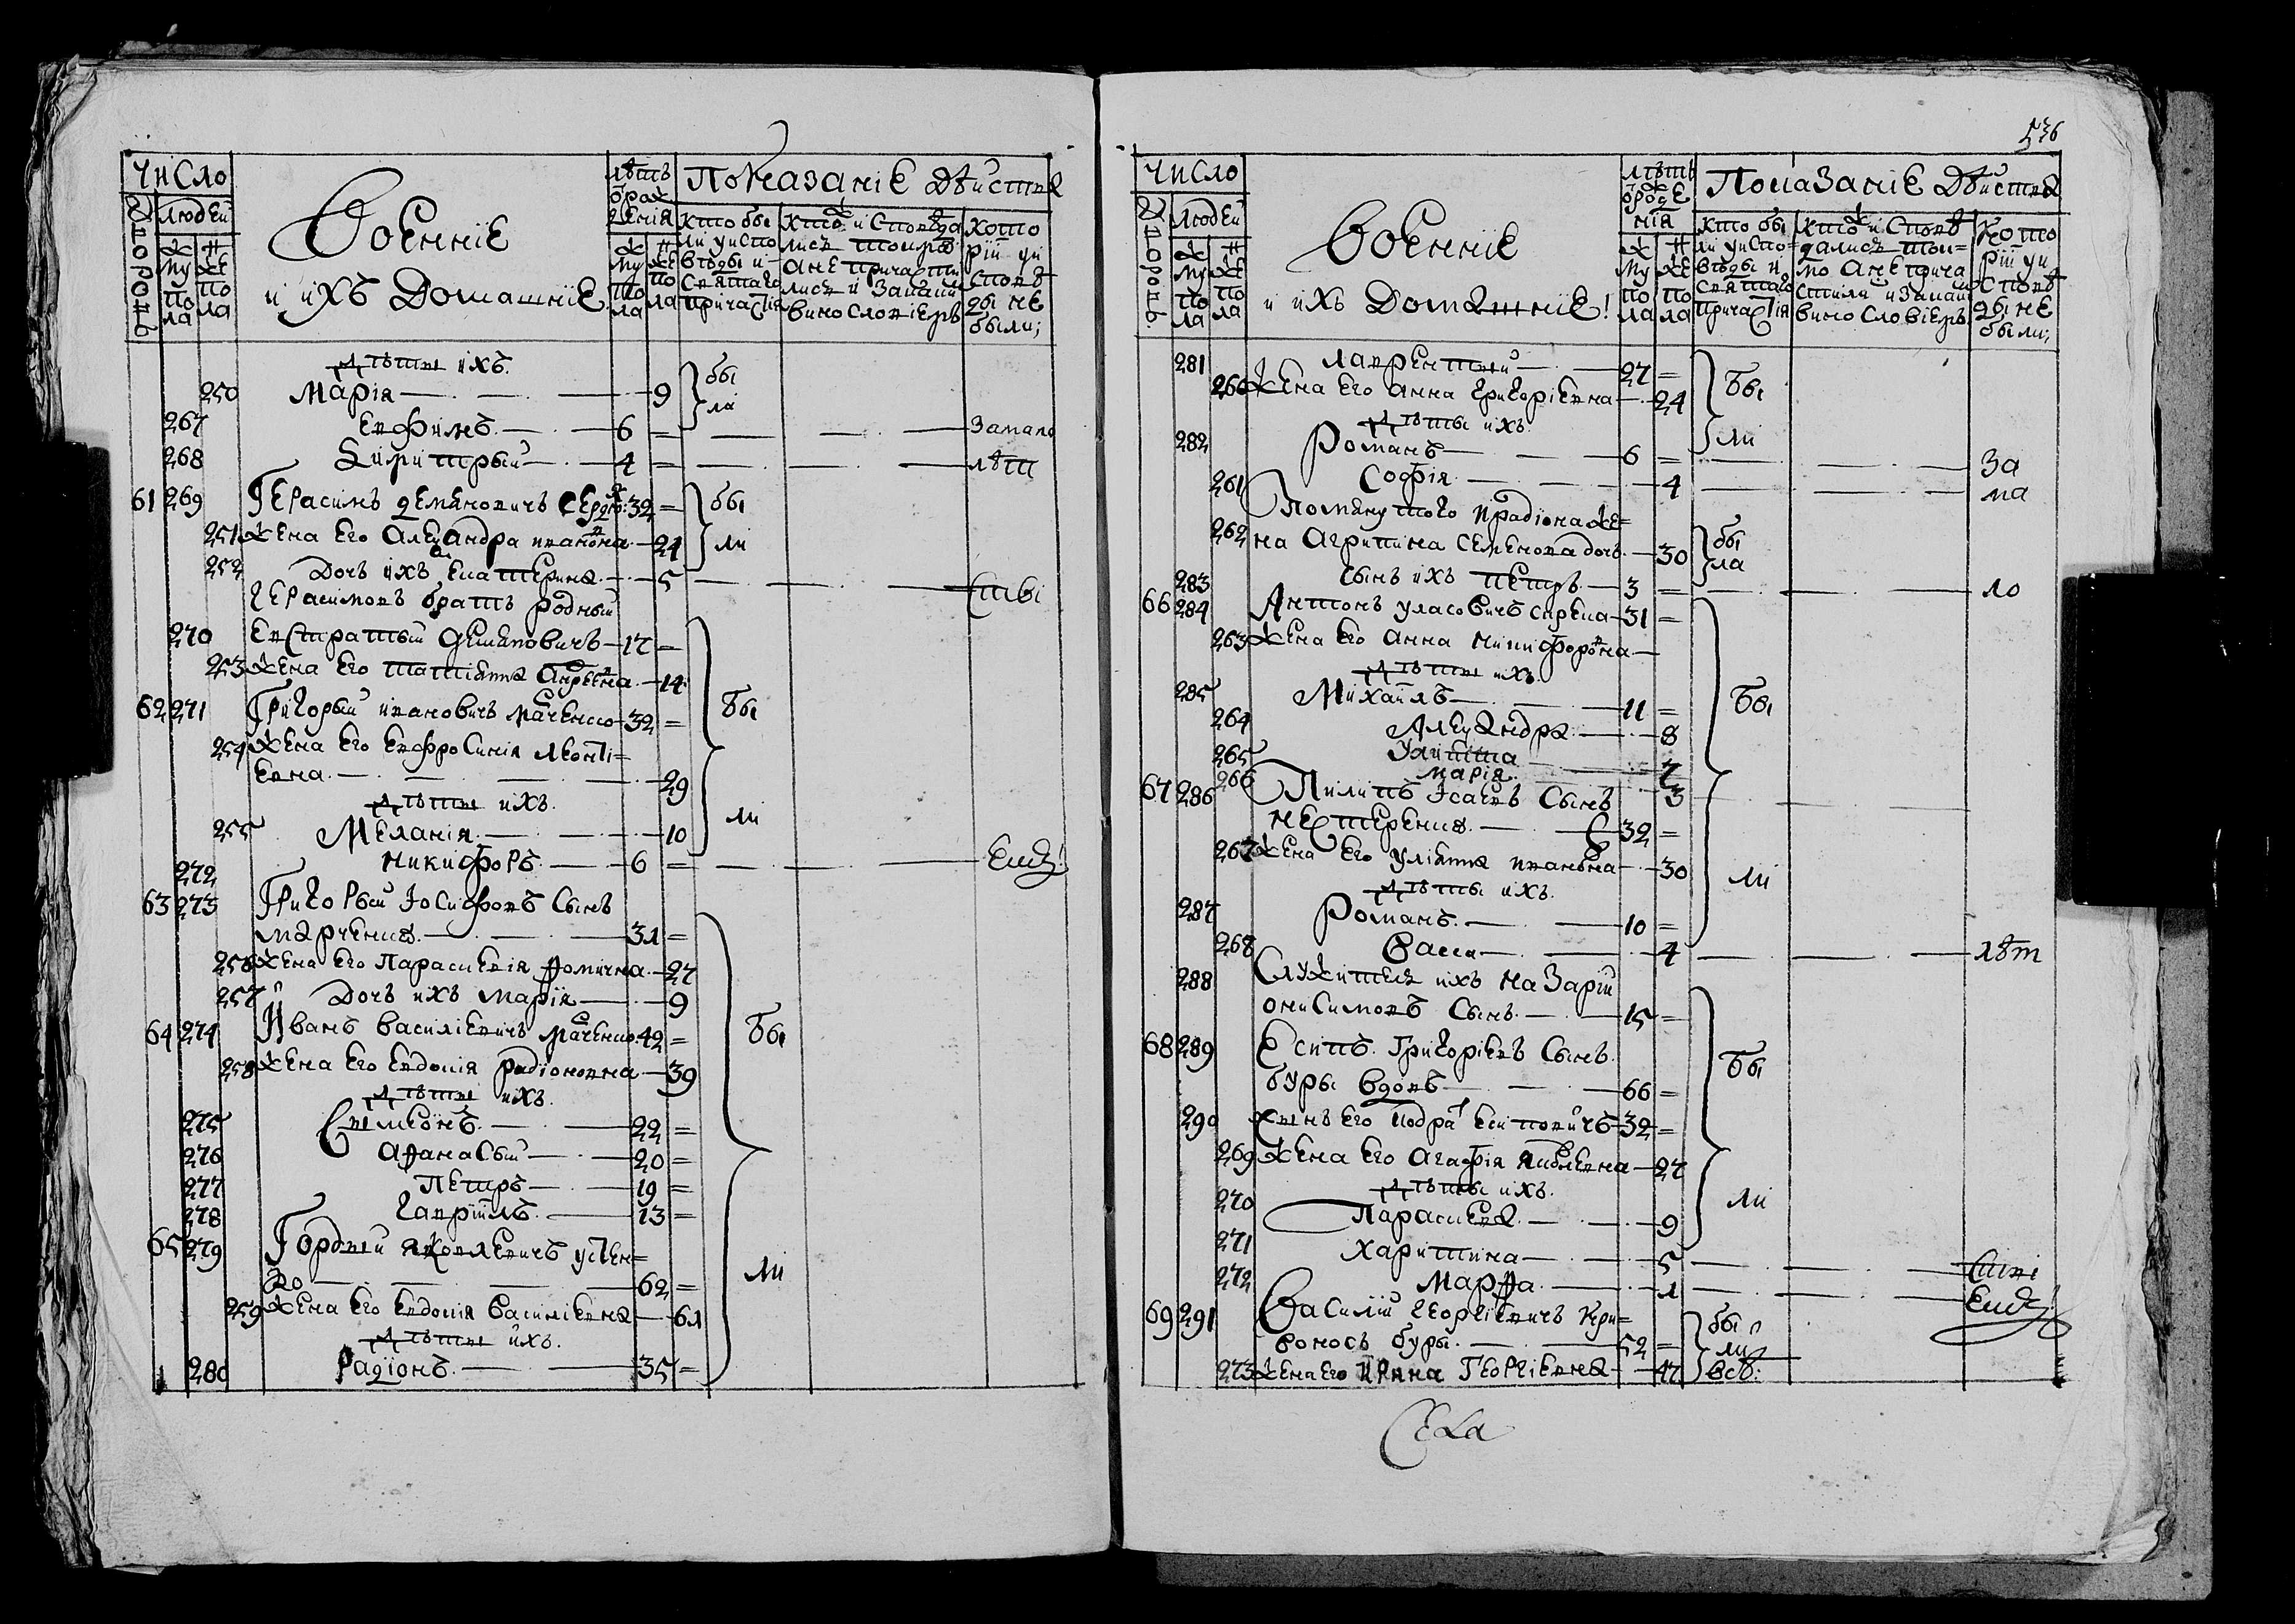 Число
Дворовъ
Людей
Муж пола
Жен пола
Военніе
и ихъ Домашніе
Лѣтъ от рожденія
Муж пола
Жен пола
Показаніе Дѣйства
Кто бы
ли у испо
вѣды и
святаго
причастія
Кто исповѣда
лись токмо
а не причасти
лись и за каким
винословіемъ
Кото
ріи у и
сповѣ
ды не
были;
дѣты ихъ.
250 Марія — 9 бы
ли
267 Евфимъ — 6 = За мало
268 Димитрый — 4 = лѣт
61 269 Герасимъ демяновичъ Сердю: 32 = бы
251 Жена его Алеѯандра ивановна — 24 ли
252 Дочь ихъ Екатерина — 5 Ст꙯вı
Герасимовъ братъ родный
270 Евстратый демяновичъ — 17 =
253 Жена его татіянна Андрѣевна — 14
62 271 Григорый ивановичъ Марченко — 32 = бы
254 Жена его Евфросинія Леонті=
евна — 29
дѣты ихъ.
255 Меланія — 10 ли
272 Никифоръ — 6 =
63 273 Григорый Іосифовъ Сынъ
Марченко — 31 =
256 Жена его Параскевія Фомична — 27
257 Дочь ихъ Марія — 9
64 274 Иванъ Василіевичъ Марченко 42 = бы
258 Жена его Евдокія радіоновна — 39
дѣты ихъ.
275 Симеонъ — 22 =
276 Афанасый — 20 =
277 Петръ — 19 =
278 Гавріилъ — 13 =
65 279 Гордый яковлевичъ устен=
ко — 62 = ли
259 Жена его Евдокія Василіевна — 61
дѣты ихъ.
280 Радіонъ — 35 =
536
Число
Дворовъ.
Людей
Муж пола
Жен пола
Военніе
и ихъ Домашніе!
Лѣтъ от рожде
нія
Муж пола
Жен пола
Показаніе Дѣйства
Кто бы
ли у испо=
вѣды и
святаго
причастія
Кто исповѣ
дались ток=
мо а не прича
стили и за каким
винословіемъ
Кото
ріи у и
сповѣ
ды не
были;
281 Лаврентый — 27 =
260 Жена его Анна Григоріевна — 24 бы
дѣты ихъ.
282 Романъ — 6 = ли За
261 Софія — 4 ма
Помянутого радіона же=
262 на Агрипина Семенова дочь — 30 бы
ла
283 Сынъ ихъ Петръ — 3 = ло
66 284 Антонъ уласовичъ — 31 =
263 Жена его Анна никифоровна —
дѣты ихъ.
285 Михаилъ — 11 = бы
264 Алеѯандра — 8
265 Улита — 7
266 Марія — 3
67 286 Пилипъ Ісаевъ Сынъ
Нестеренко — 32 =
267 Жена его уліянна ивановна — 30
дѣты ихъ. ли
287 Романъ — 10 =
268 Васса — 4 лѣт
288 Служитель ихъ Назарій
онисимовъ Сынъ — 15 =
68 289 Есипъ Григоріевъ Сынъ
буры вдовъ — 66 = бы
290 Сынъ его Кодра Есиповичъ — 32 =
269 Жена его Агафія яковлевна — 27
дѣты ихъ. ли
270 Параскева — 9
271 Харитина — 5
272 Марфа — 1
69 291 Василій Георгіевичъ Кри=
воносъ буры — 52 = бы
ли
273 Жена его Ирина Георгіевна — 47 всѣ.
Села